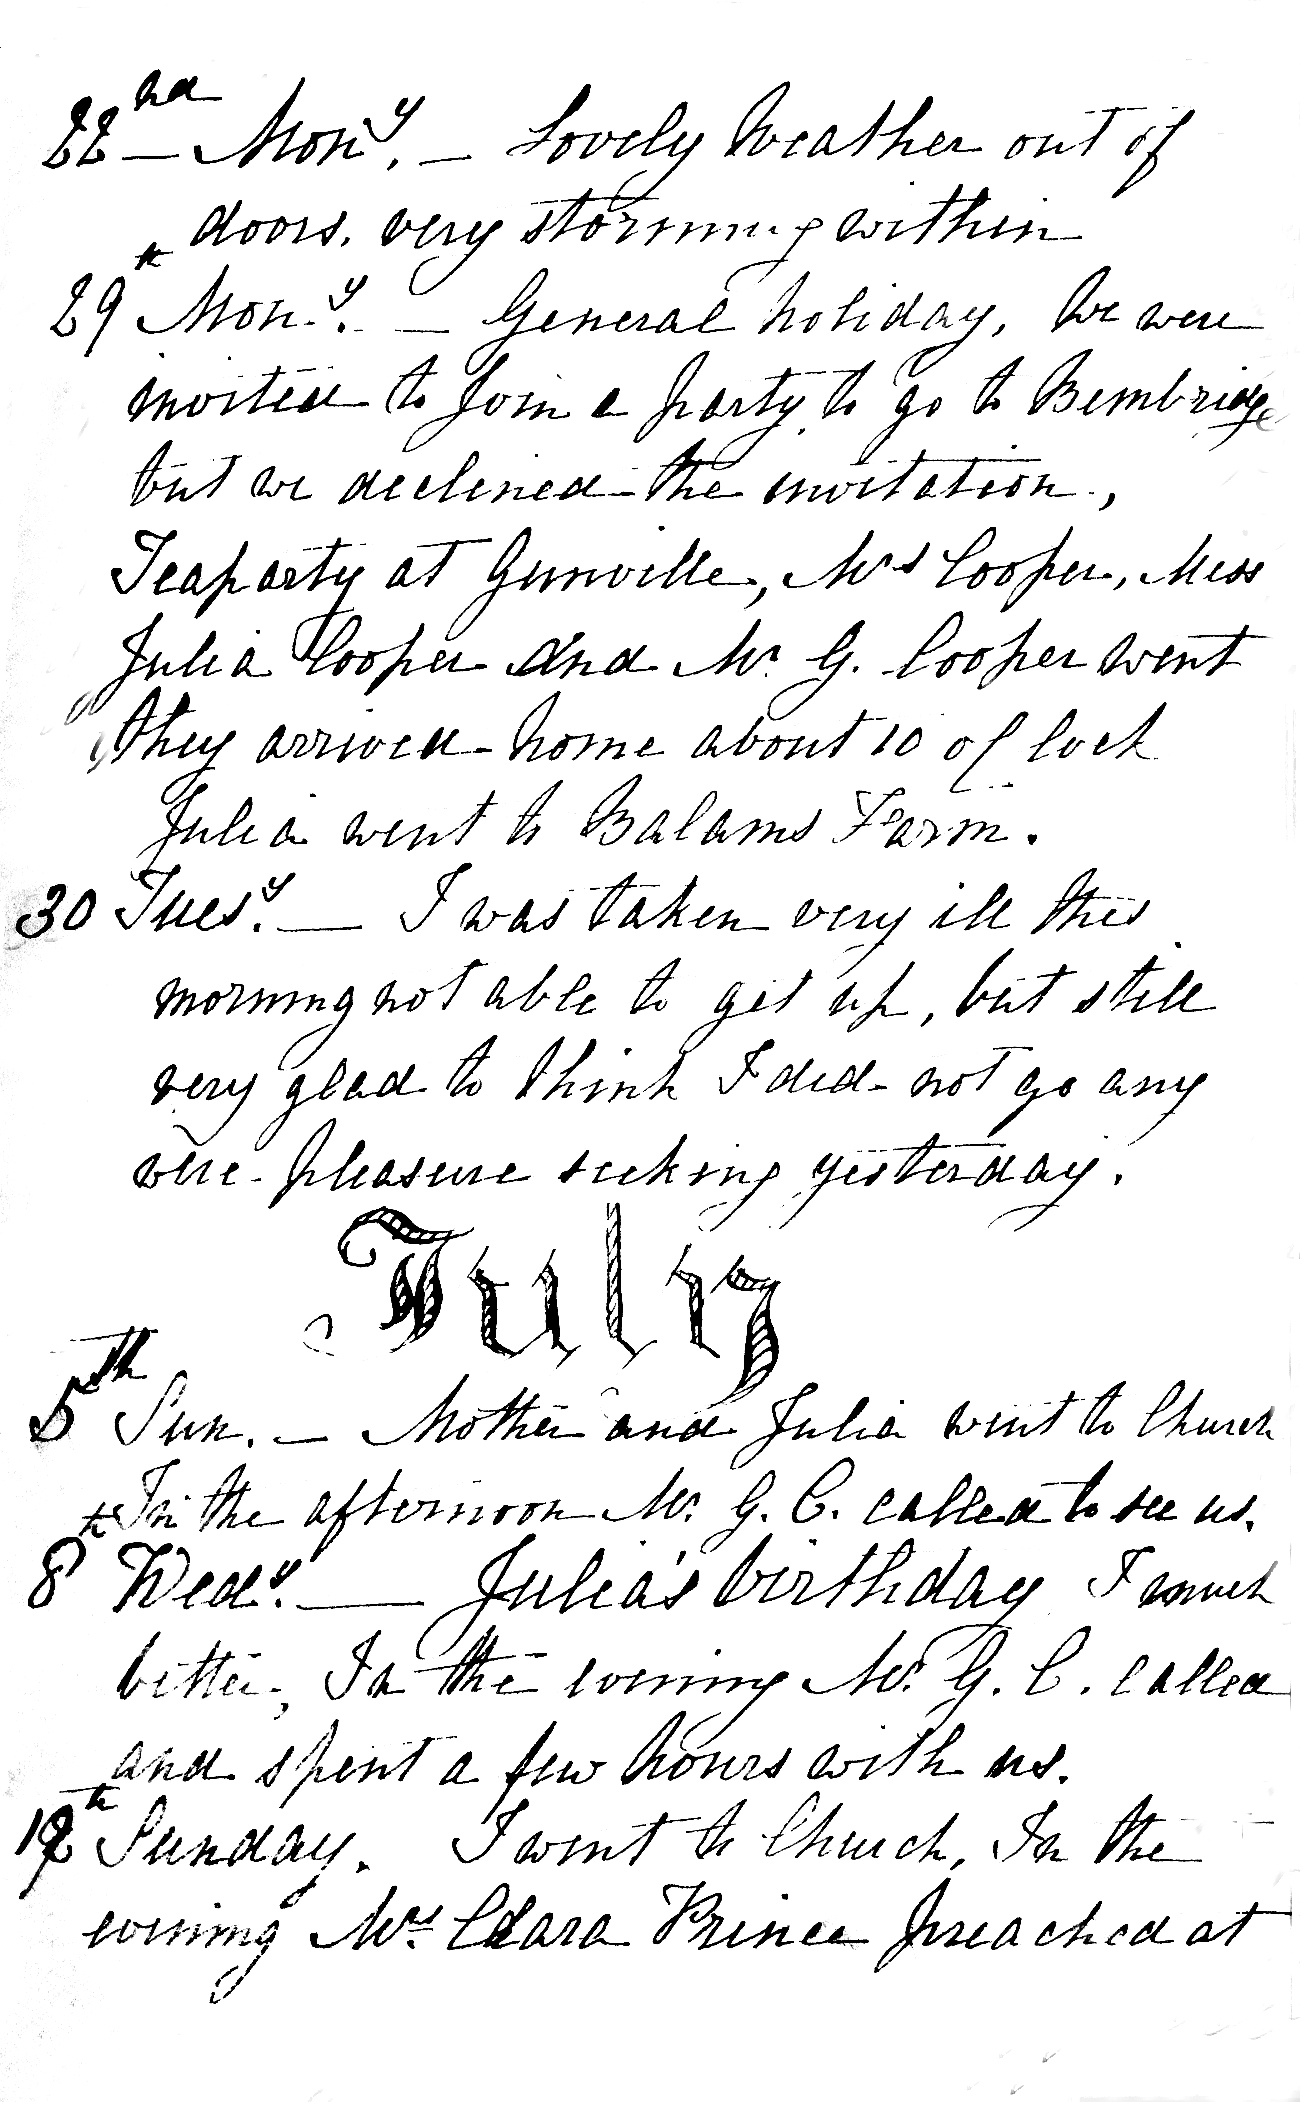 22nd — Mony. — Lovely Weather out of
doors, very storming within
29th Mony. — General holiday, We were
invited to join a party to go to Bembridge
but we declined the invitation,
Teaparty at Gunville, Mrs Cooper, Miss
Julia Cooper and Mr G. Cooper went
they arrived home about 10 oClock
Julia went to Balams Farm.
30 Tuesy. — I was taken very ill this
morning not able to get up, but still
very glad to think I did not go any
were pleasure seeking yesterday.
July
5th Sun. — Mother and Julia went to Church
In the afternoon Mr. G. C. called to see us.
8th Wedy. — Julia's birthday I much
better, In the evening Mr. G. C. called
and spent a few hours with us.
12th Sunday. I went to Church, In the
evening Mrs. Clara Prince preached at